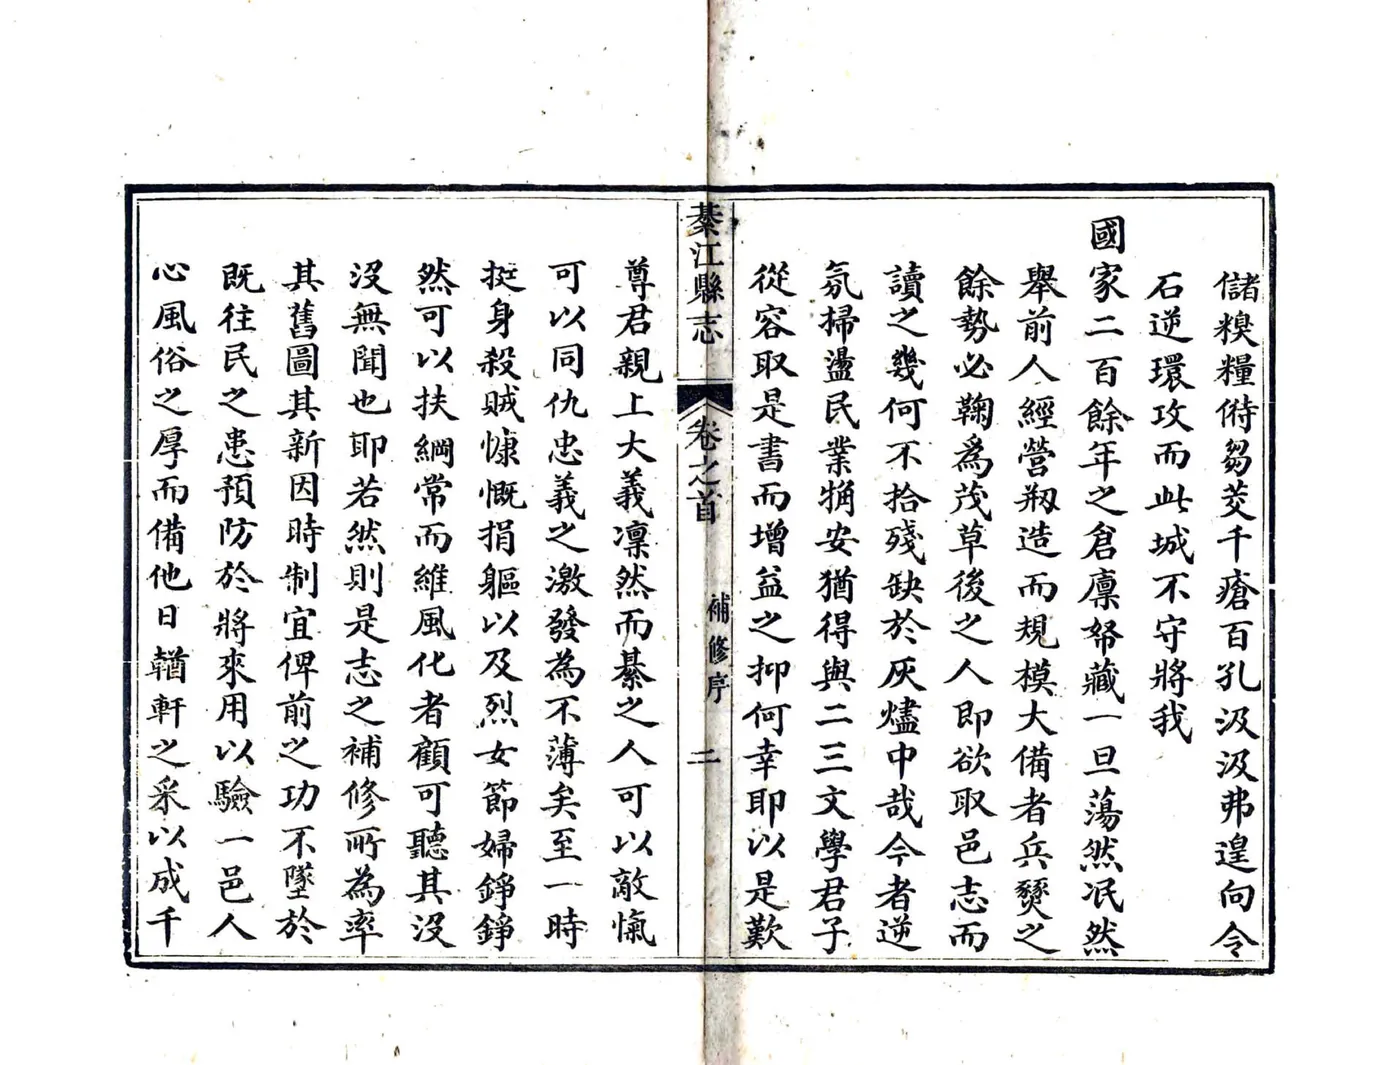 儲糗糧偫芻茭千瘡百孔汲汲弗遑向令
石逆環攻而此城不守將我
國家二百餘年之倉廪帑藏一旦蕩然冺然
舉前人經營剏造而規模大備者兵燹之
餘勢必鞠爲茂草後之人即欲取邑志而
讀之幾何不拾殘缺於灰燼中哉今者逆
氛掃盪民業觕安猶得與二三文學君子
從容取是書而增益之抑何幸耶以是歎
綦江縣志
卷之首
補修序
二
尊君親上大義凛然而綦之人可以敵愾
可以同仇忠義之激發為不薄矣至一時
挺身殺賊慷慨捐軀以及烈女節婦錚錚
然可以扶綱常而維風化者顧可聽其沒
沒無聞也耶若然則是志之補修所為率
其舊圖其新因時制宜俾前之功不墜於
既往民之患預防於將來用以驗一邑人
心風俗之厚而備他日輶軒之采以成千